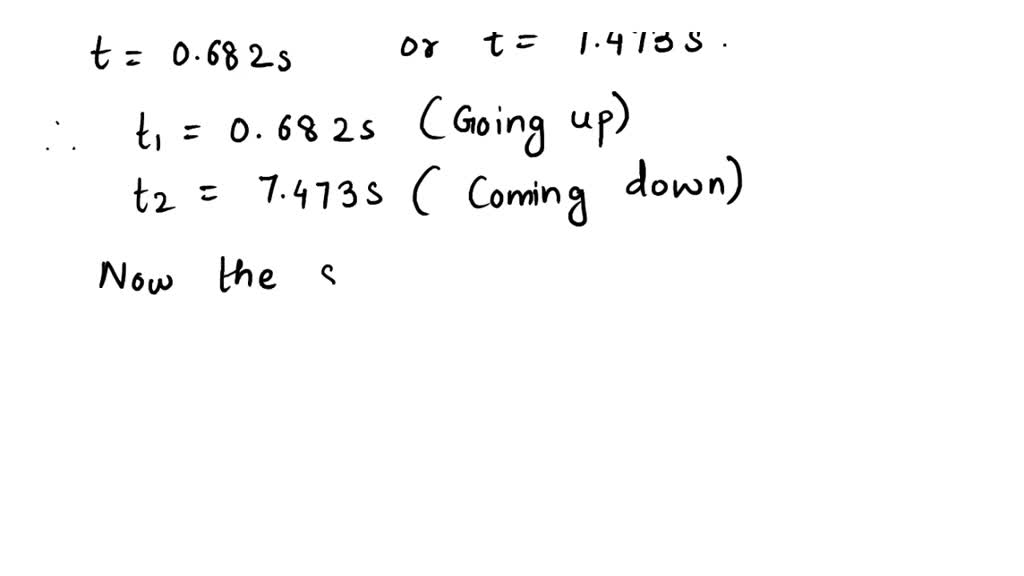 t = 0.682s or t =
∴ t₁ = 0.682s (Going up)
t₂ = 7.473s (Coming down)
Now the s